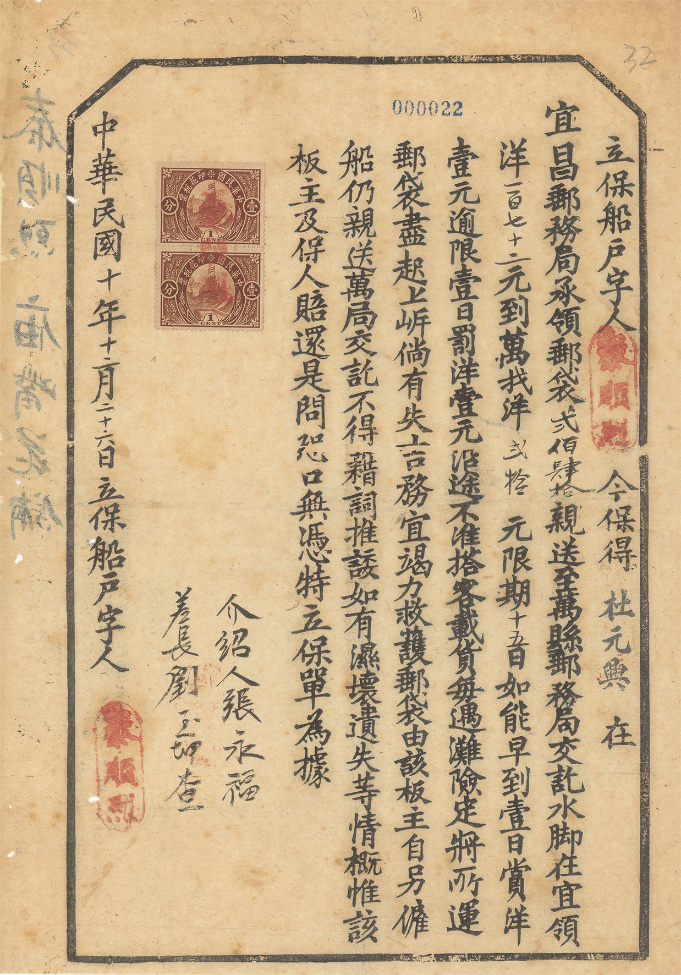 32
000022
立保船戶字人 泰順烈 今保得 杜元興 在
宜昌郵務局承領郵袋弍佰肆拾親送至萬縣郵務局交訖水脚在宜領
洋一百七十二元到萬找洋弍拾元限期十五日如能早到壹日賞洋
壹元逾限壹日罰洋壹元沿途不准搭客載貨每遇灘險定將所運
郵袋盡起上岍倘有失吉務宜竭力救護郵袋由該板主自另僱
船仍親送萬局交訖不得藉詞推諉如有濕壞遺失等情概惟該
板主及保人賠還是問恐口無憑特立保單為據
介紹人張永福
差長劉玉坤查
中華民國十年十二月二十六日立保船戶字人
泰順烈
中華民國印花稅票
壹分
1 CENT
中華民國印花稅票
壹分
1 CENT
泰順烈 庙嘴